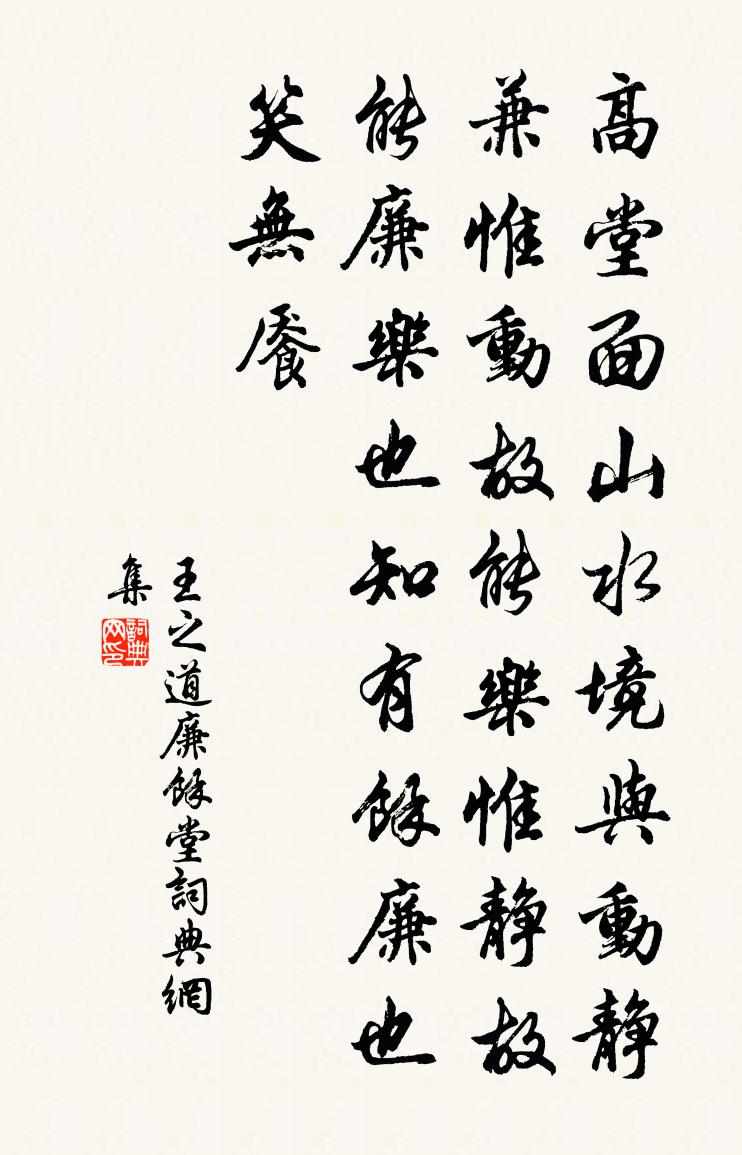 高堂面山水境與動靜
兼惟動故能樂惟靜故
能廉樂也知有餘廉也
笑無饜
王之道廉餘堂詞典網
集
詞典
网印